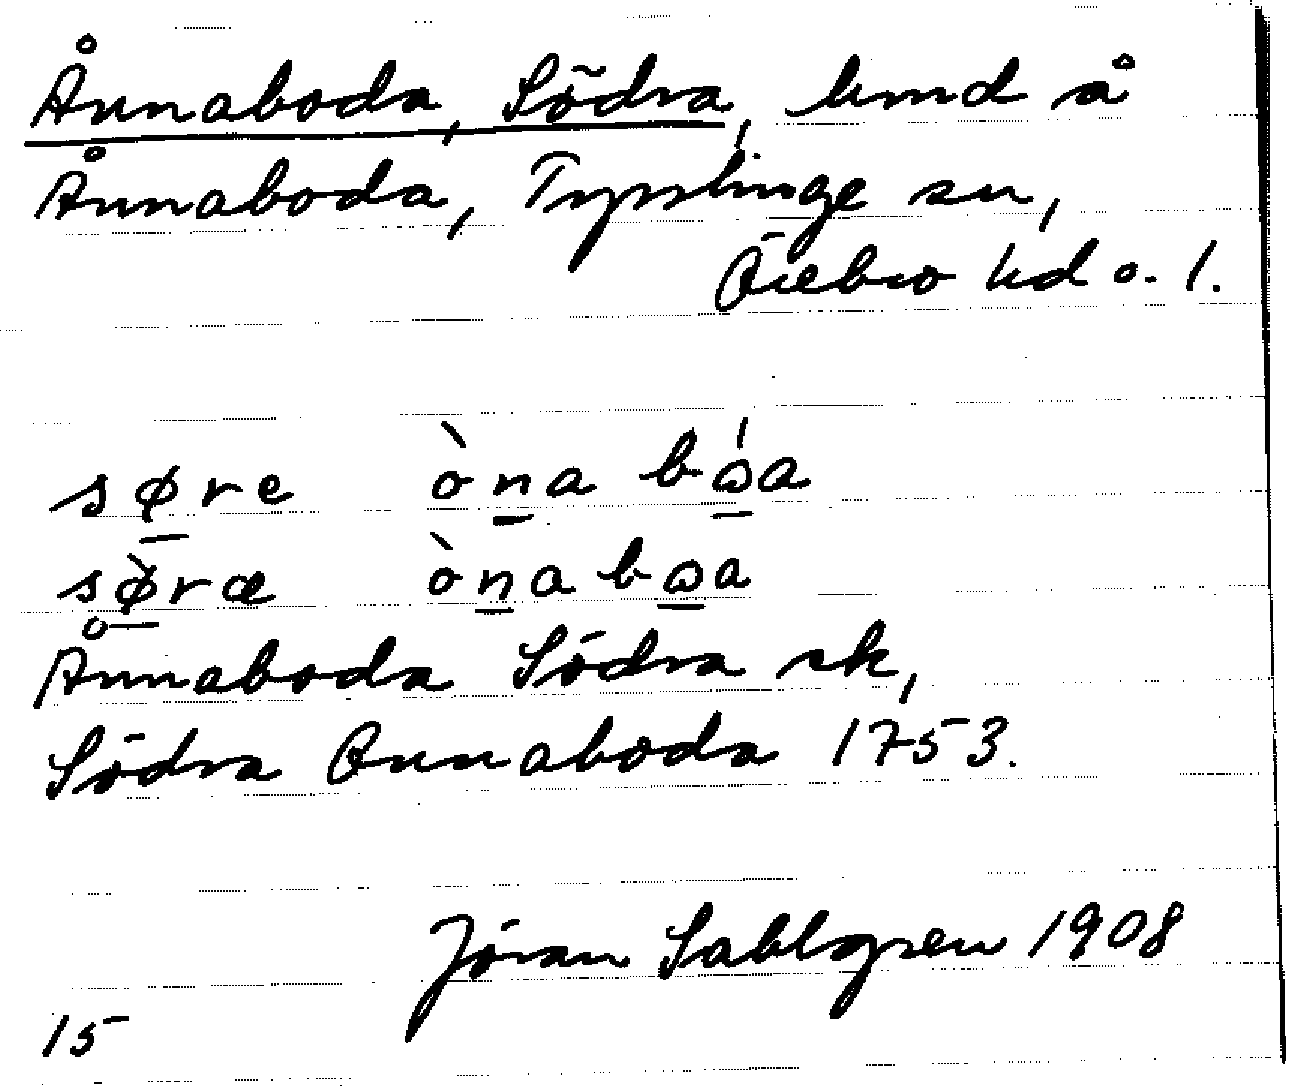 Ånnaboda, Södra, bmd å
Ånnaboda, Tysslinge sn,
Örebro hd o. l.
søre ònabωa
sø̀ræ ònabωa
Ånnaboda Södra sk,
Södra Önnaboda 1753.
Jöran Sahlgren 1908
15